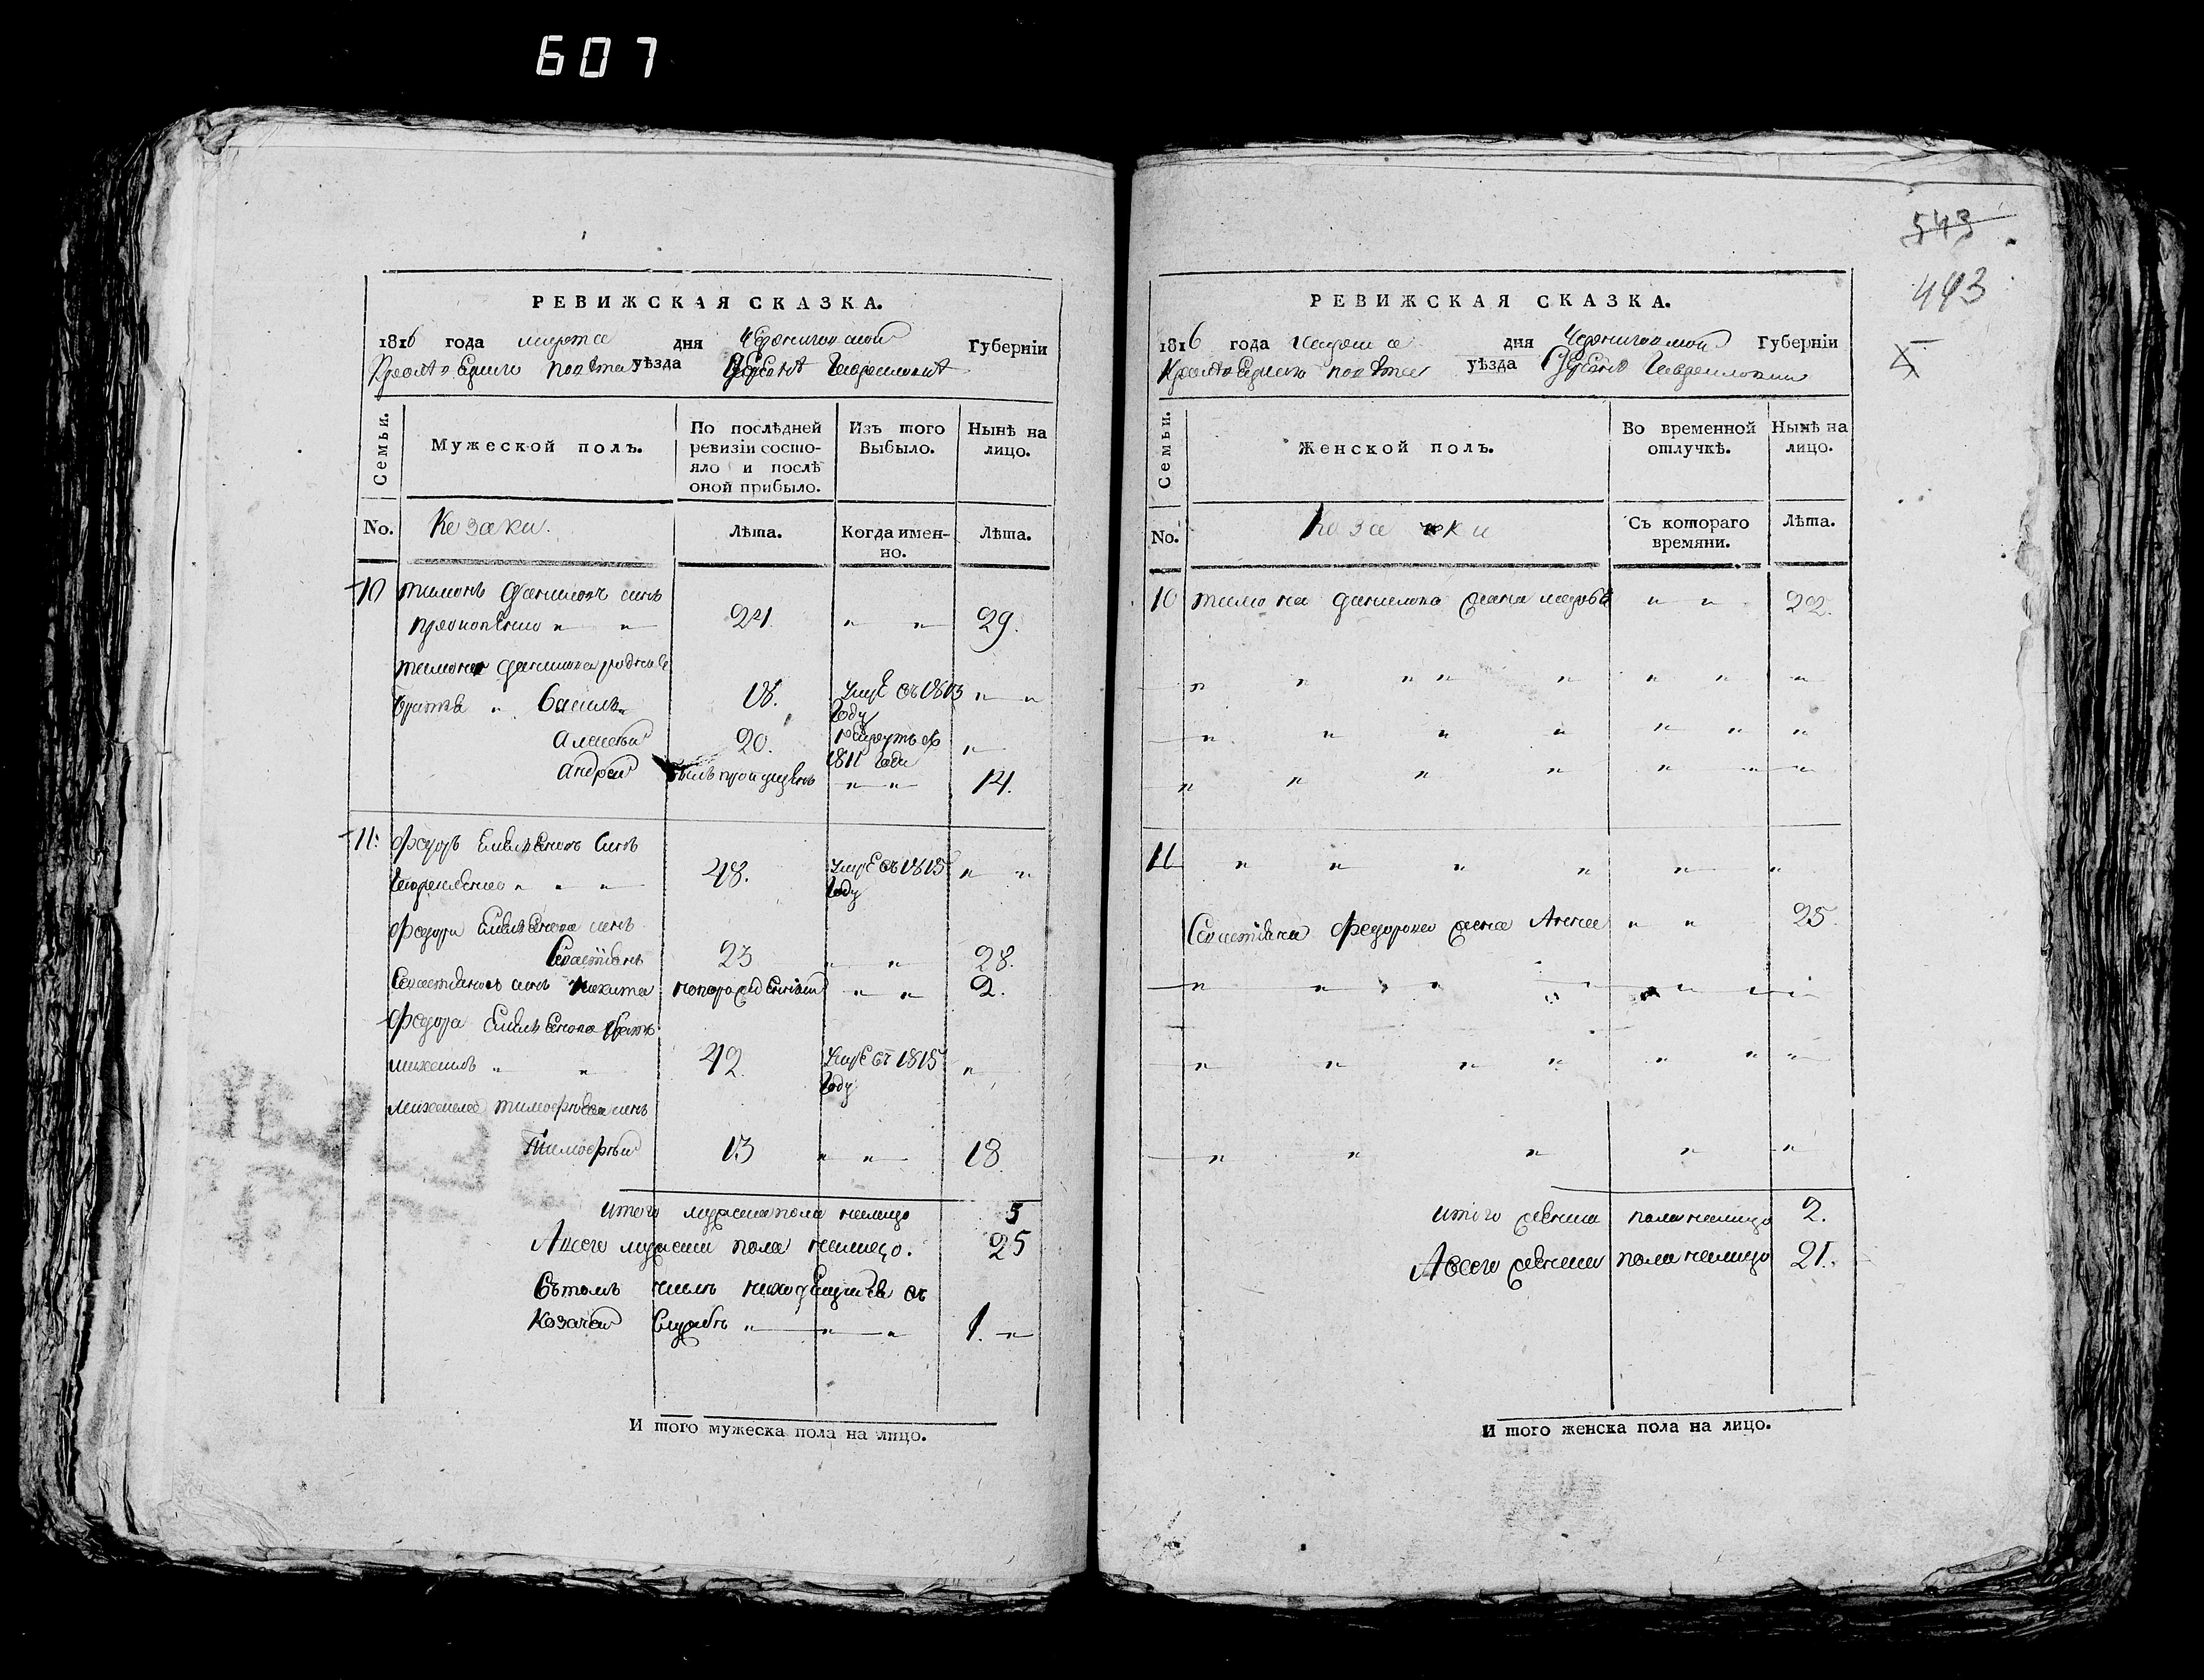 607
РЕВИЖСКАЯ СКАЗКА.
1816 года марта дня Черниговской Губерніи
уѣзда
Семьи.
Мужеской полъ.
По послѣдней ревизіи состояло и послѣ оной прибыло.
Изъ того Выбыло.
Нынѣ на лицо.
No.
Козаки.
Лѣта.
Когда именно.
Лѣта.
10 тимонъ Даниловъ синъ
24. " " 29.
тимона Данилова родніе
братья " Василь 18. умре въ 1813 году " "
Алексѣй 20. 1811 года "
Андрей былъ пропущенъ " " 14.
11. Федоръ Емельяновъ Синъ
" " " 48. умре въ 1815 году " "
Федора Емельянова синъ
Севастіянъ 23 " " 28.
Севастіяновъ синъ Никита новорожденній " " 2.
Федора Емельянова братъ
михаилъ " " 42. умре въ 1815 году "
михаила синъ
Тимофѣй 13 " " 18
итого мужеска пола налицо 5
А всего мужеска пола налицо. 25
Въ томъ числѣ находящийся въ
Козачей Службѣ " " " 1. "
И того мужеска пола на лицо.
543
443
РЕВИЖСКАЯ СКАЗКА.
1816 года марта дня Черниговской Губерніи
уѣзда
Семьи.
Женской полъ.
Во временной отлучкѣ.
Нынѣ на лицо.
No.
Козачки
Съ котораго времяни.
Лѣта.
10 тимона Данилова жена " " 22.
" " " " " " " "
" " " " " " "
" " " " " " "
11 " " " " " "
Севастіяна Федорова жена Анна " " 25.
" " " " " " "
" " " " " " "
" " " " "
итого женска пола налицо 2.
А всего женска пола налицо 21.
И того женска пола на лицо.